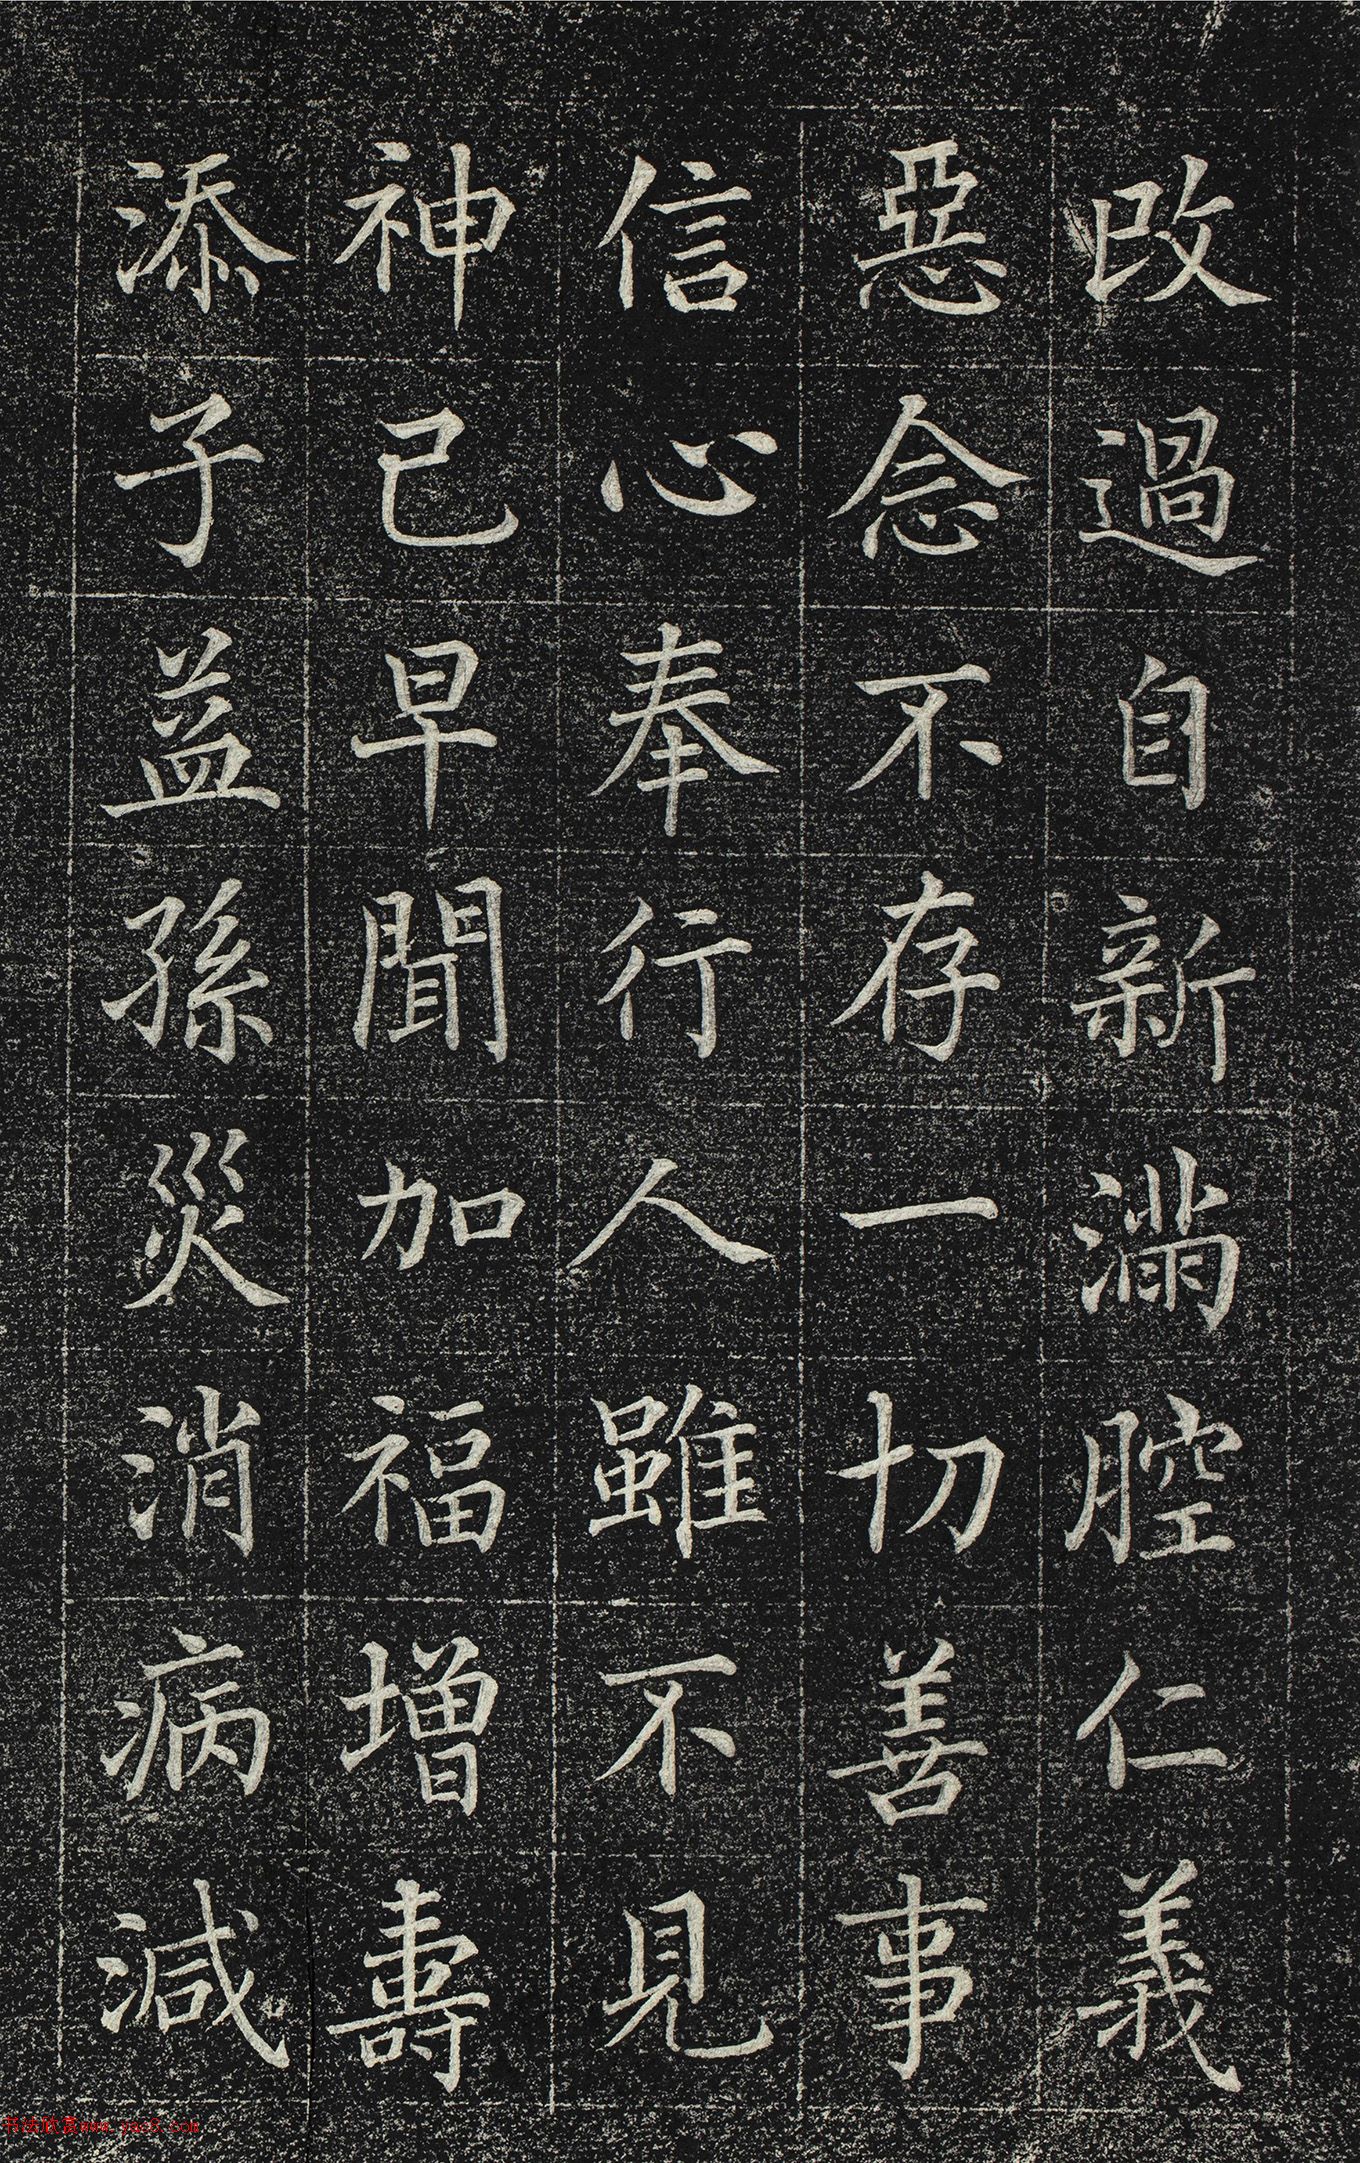 改過自新滿腔仁義
惡念不存一切善事
信心奉行人雖不見
神已早聞加福增壽
添子益孫災消病減
书法欣赏www.yac8.com